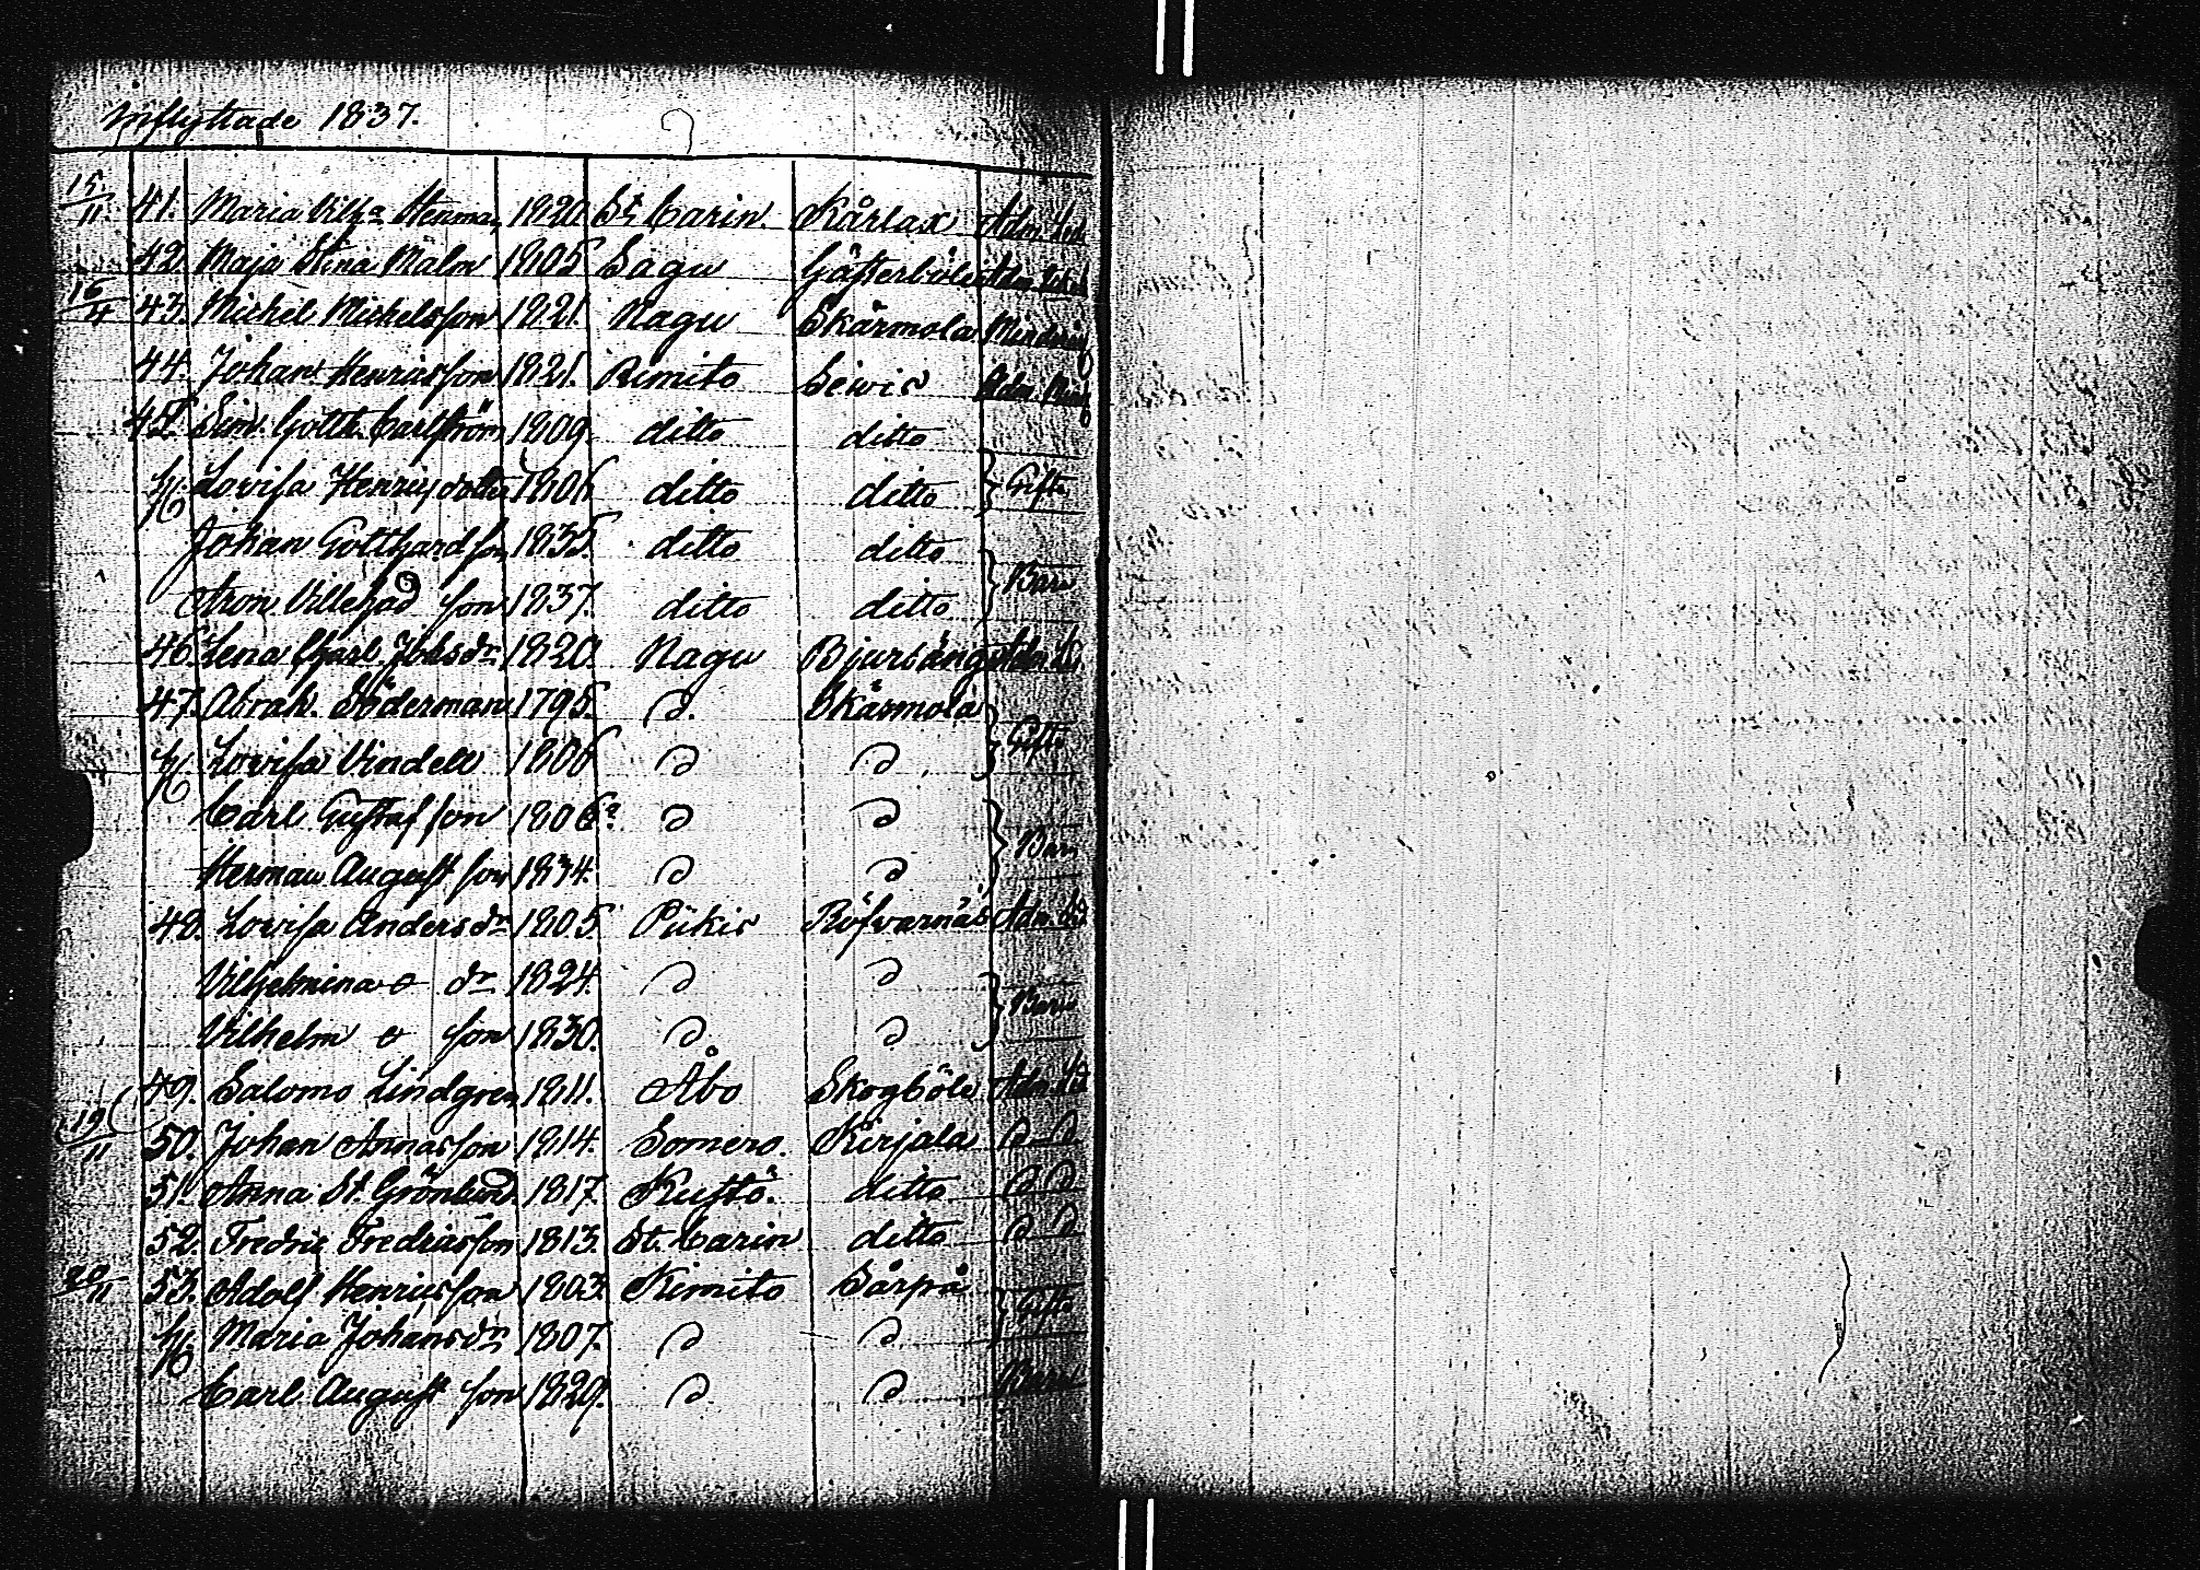 Inflyttade 1837.
15/11. 41. Maria Vilh:a Stenman 1820 St Carin. Kårlax Adm. Led.
42. Maja Stina Malm 1805 Sagu Gåsterböle Adm.
16/11 43. Michel Michelsson 1821. Nagu Skärmola Mindrig
44. Johan Henricsson 1821. Kimito Sewis Adm. Mind
45. Sim. Gotth. Carlström 1809. ditto ditto
H. Lovisa Henricsdotter 1806 ditto ditto } Gifta
Johan Gotthard son 1835. ditto ditto
Aron Villehad son 1837. ditto ditto } Barn
46. Lena Charl. Johsdr 1820. Nagu Bjursäng Adm. Led.
47. Abrah. Söderman 1795. D. Skärmola
H. Lovisa Vindell 1806 D D. } Gifta
Carl Gustaf son 1806? D D
Herman August son 1834. D D } Barn
48. Lovisa Andersdr 1805. Piikis Röfvarnäs Adm. Led
Vilhelmina o dr 1824. D D
Vilhelm o son 1830. D D } Barn
49. Salomo Lindgren 1811. Åbo Skogböle Adm. Led
19/11 50. Johan Annasson 1814. Somero. Kirjala D D
51. Anna St. Grönlund 1817. Kustö. ditto D D
52. Fredric Fredricsson 1813. St. Carin ditto D D
20/11 53. Adolf Henricsson 1803. Kimito Sårpå
H. Maria Johansdr 1807. D D. } Gifta
Carl August son 1829. D. D Barn